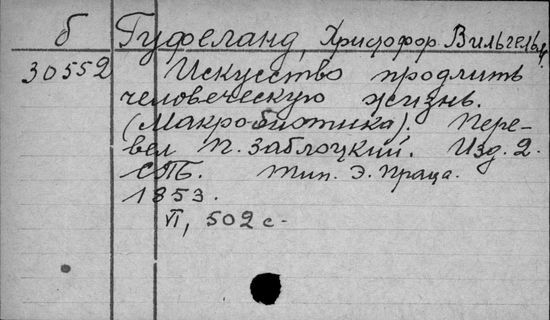 б Гуфеланд, Христофор Вильгельм.
30552 Искусство продлить
человеческую жизнь.
(Макробиотика). Пере-
вел П. Заблоцкий. Изд. 2.
СПБ. Тип. Э. Праца.
1853.
VI, 502 с.